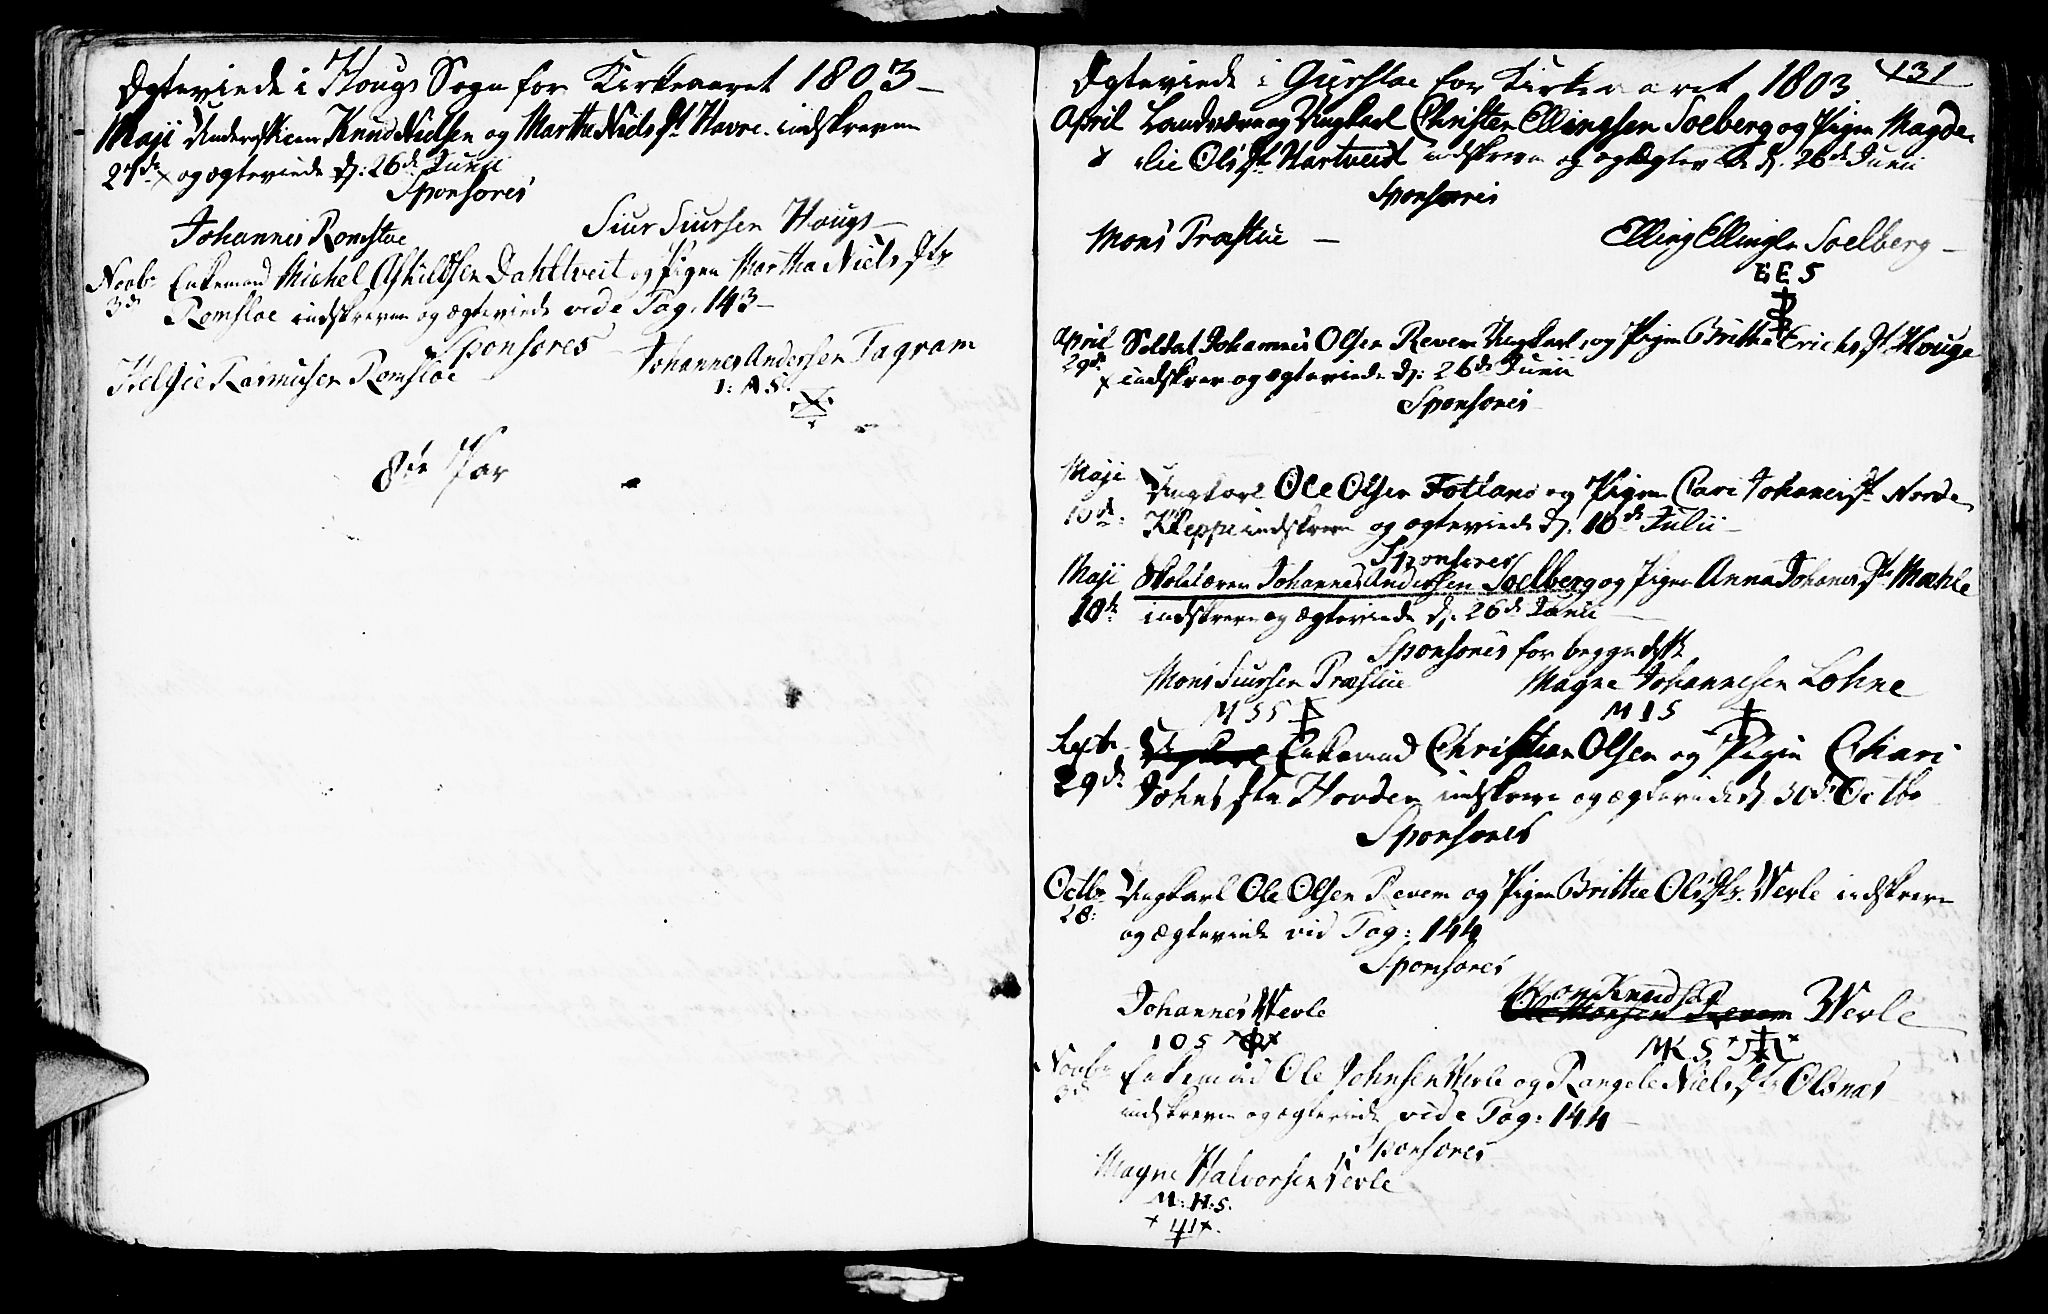 Ægteviede i Hougs Sogn for Kirkeaaret 1803
Maji Knud Nielsen og Martha Niels Dr Havre indskrevne
27de og ægteviede d: 26de Junii
Sponsores
Johannes Romsloe Siur Siursen Hougs
Novbr Enkemand Michel Dahltveit og Pigen Martha Niels Dtr
3de Romsloe indskrevne og ægteviede vide Pag. 143
Sponsores Johannes Andersen Tagram
Helgie Rasmusen Romsloe
I: A S.
8te Par
Ægteviede i for Kirkeaaret 1803 131
April og Ungkarl Christen Ellingsen Soeberg og Pigen Magde
lie Ols Dr Hartveit indskrevne og ægteviede d. 26de Junii
Sponsores
Mons Præstue Elling Ellingsen Soelberg
E E S
April Soldat Johannes Olsen Revem Ungkarl, og Pigen Britha Erichs Dr Houge
29de indskrev og ægteviede d: 26de Junii
Sponsores
Maji Ungkarl Ole Olsen Fotland og Pigen Cari Johannes Dr Norde
10de Kleppe indskreven og ægteviede d. 10de Julii
Sponsores
Maji Skolelæren Johannes Andersen Soelberg og Pigen Anna Johanes Dr Mæhle
18de indskreven og ægteviede d: 26de Junii
Sponsores for begge
Mons Siursen Præstue Magne Johannesen Lohne
M S S M I S
Septbr Ungkarl Enkemand Christian Olsen og Pigen Chari
29de Johns Dtr Hovden indskreven og ægteviede d. 30de Octbr
Sponsores
Octbr Ungkarl Ole Olsen Revem og Pigen Brittie Ols Dtr. Werle indskreven
28: og ægteviede vid Pag: 144
Sponsores
Mon Knudsen
Johannes Werle Ole Monsen Revem Werle
I O S M K S
Novbr Enkemand Ole Johnsen Werle og Rangele Niels Dtr Olsnæs
3de indskreven og ægteviede vide Pag: 144
Sponsores
Magne Halvorsen Verle
M: H: S.